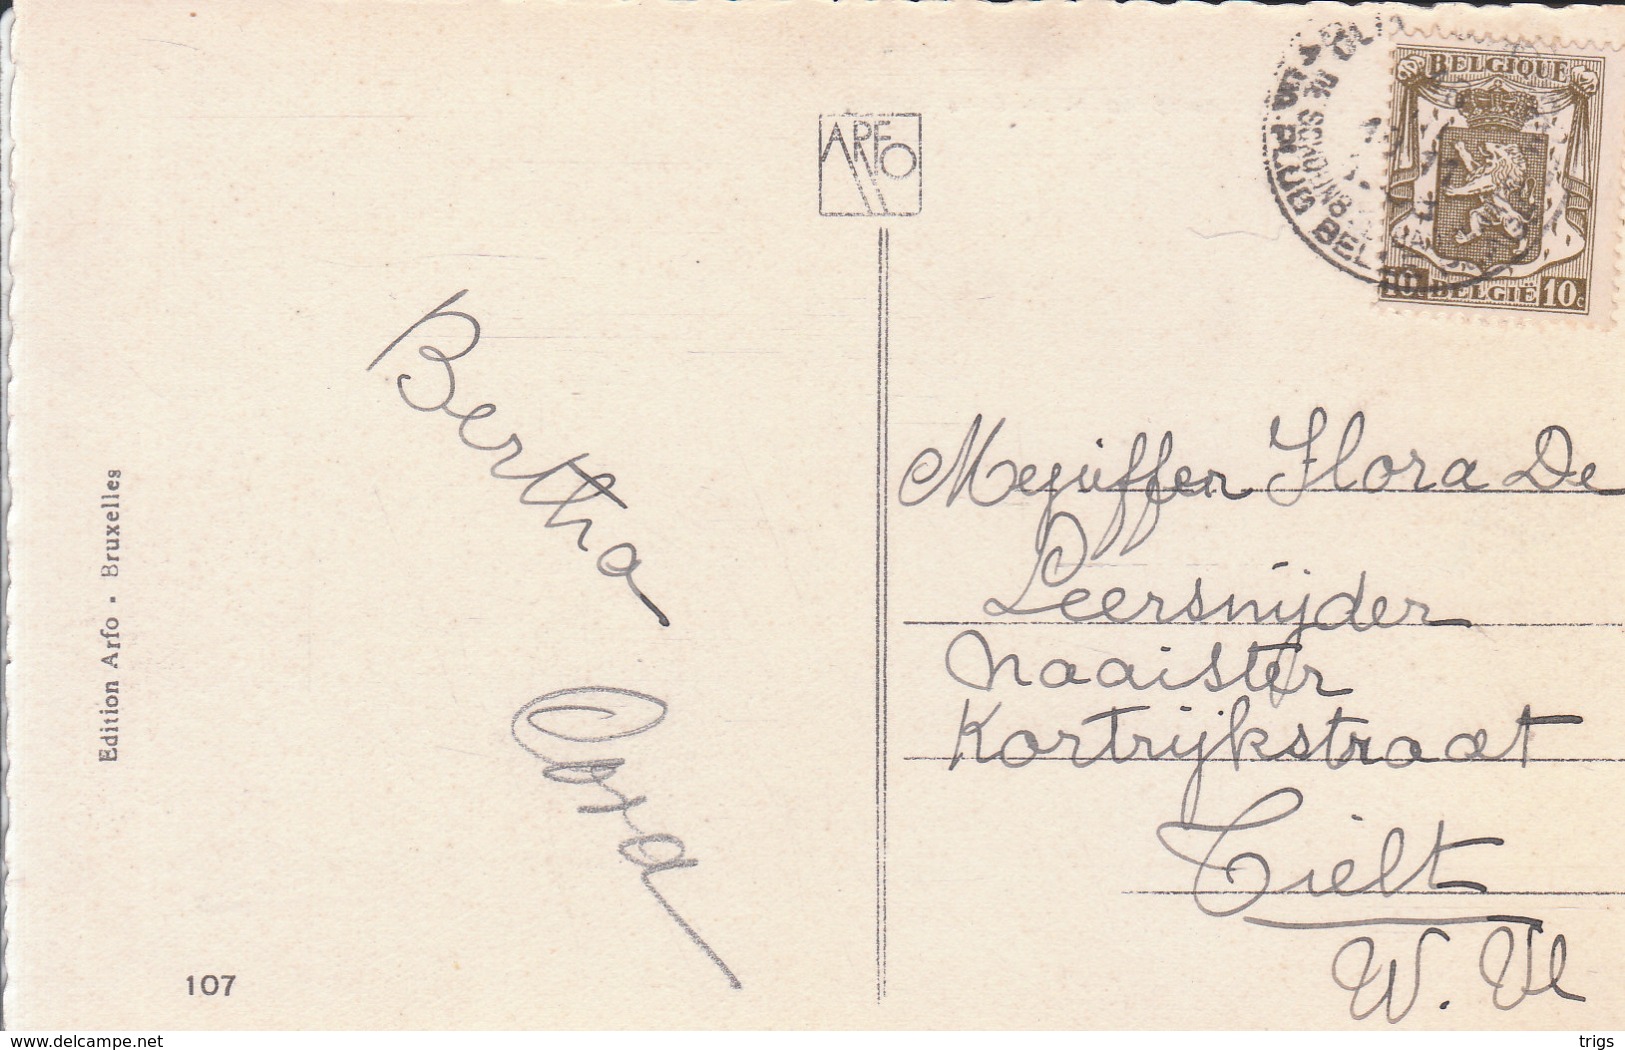 ARFO
BELGIQUE
BELGIE 10c
Bertha
Cora
Mejuffer Flora De
Leersnijder
Naaister
Kortrijkstraat
Tielt
W. Vl
Edition Arfo - Bruxelles
107
www.delcampe.net
trigs